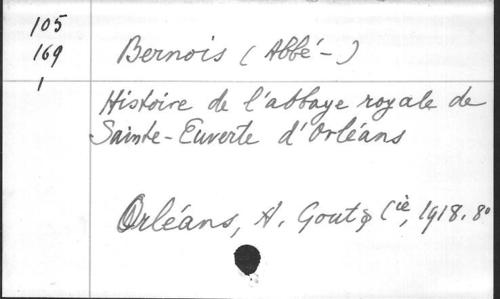 105
169
1
Bernois (Abbé-)
Histoire de l'abbaye royale de
Sainte-Euverte d'Orléans
Orléans, A. Gout & Cie, 1918. 8o